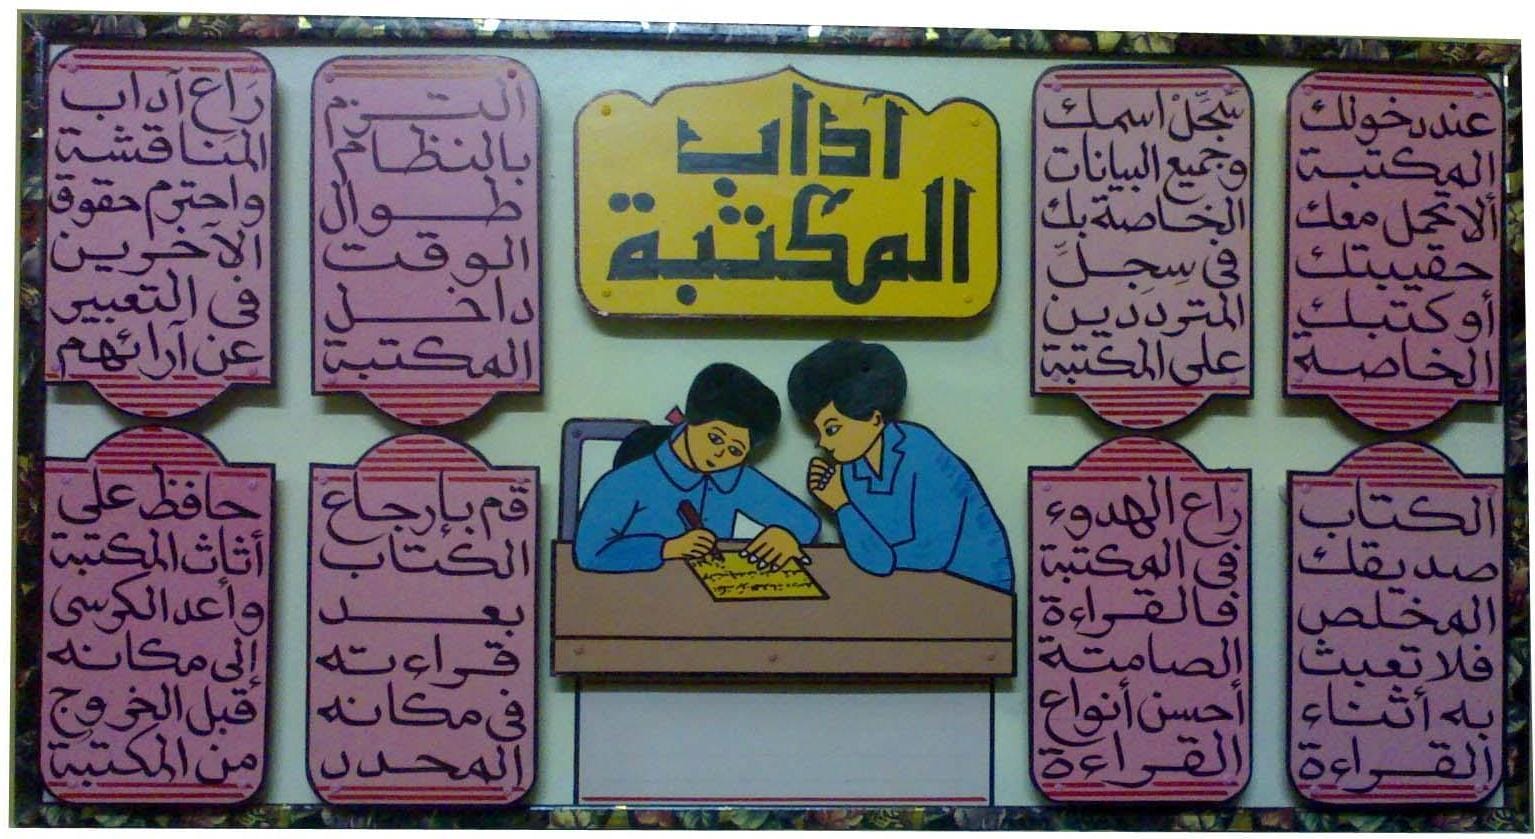 آداب
المكتبة
عند دخولك
المكتبة
ألا تحمل معك
حقيبتك
أو كتبك
الخاصة
سجِّلْ اسمك
وجميع البيانات
الخاصة بك
في سِجِلِّ
المتردِدين
على المكتبة
التــزم
بالنظام
طــوال
الوقت
داخــل
المكتبة
رَاعِ آداب
المناقشة
واحترم حقوق
الآخرين
فى التعبير
عن آرائهم
الكتاب
صديقك
المخلص
فلا تعبث
به أثناء
القــراءة
راع الهدوء
فى المكتبة
فالقراءة
الصامتة
أحسن أنواع
القراءة
قم بإرجاع
الكتاب
بعــد
قراءته
فى مكانه
المحدد
حافظ على
أثاث المكتبة
وأعد الكرسى
إلى مكانه
قبل الخروج
من المكتبة